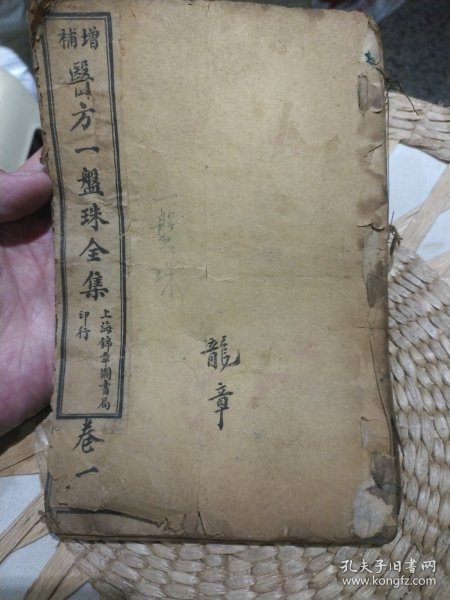 增補
醫方一盤珠全集
上海錦章圖書局
印行
卷一
一盤珠
龍章
孔夫子旧书网
www.kongfz.com